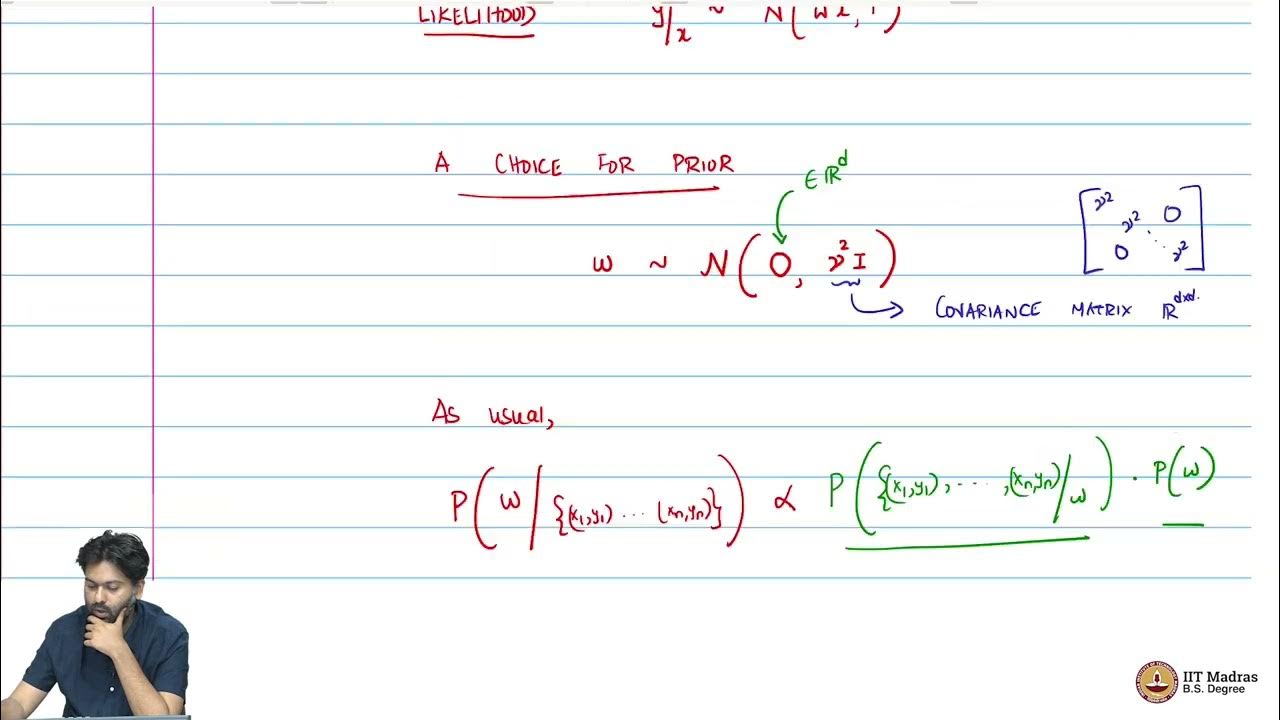 LIKELIHOOD y/x ~ N(
A CHOICE FOR PRIOR
∈ ℝ^d
w ~ N(0, γ²I)
[γ² γ² ⋱ γ² 0 0]
COVARIANCE MATRIX ℝ^dxd.
As usual,
P(w / {(x₁,y₁) ... (xₙ,yₙ)}) ∝ P({(x₁,y₁), ...., (xₙ,yₙ) / w) . P(w)
IIT Madras
B.S. Degree